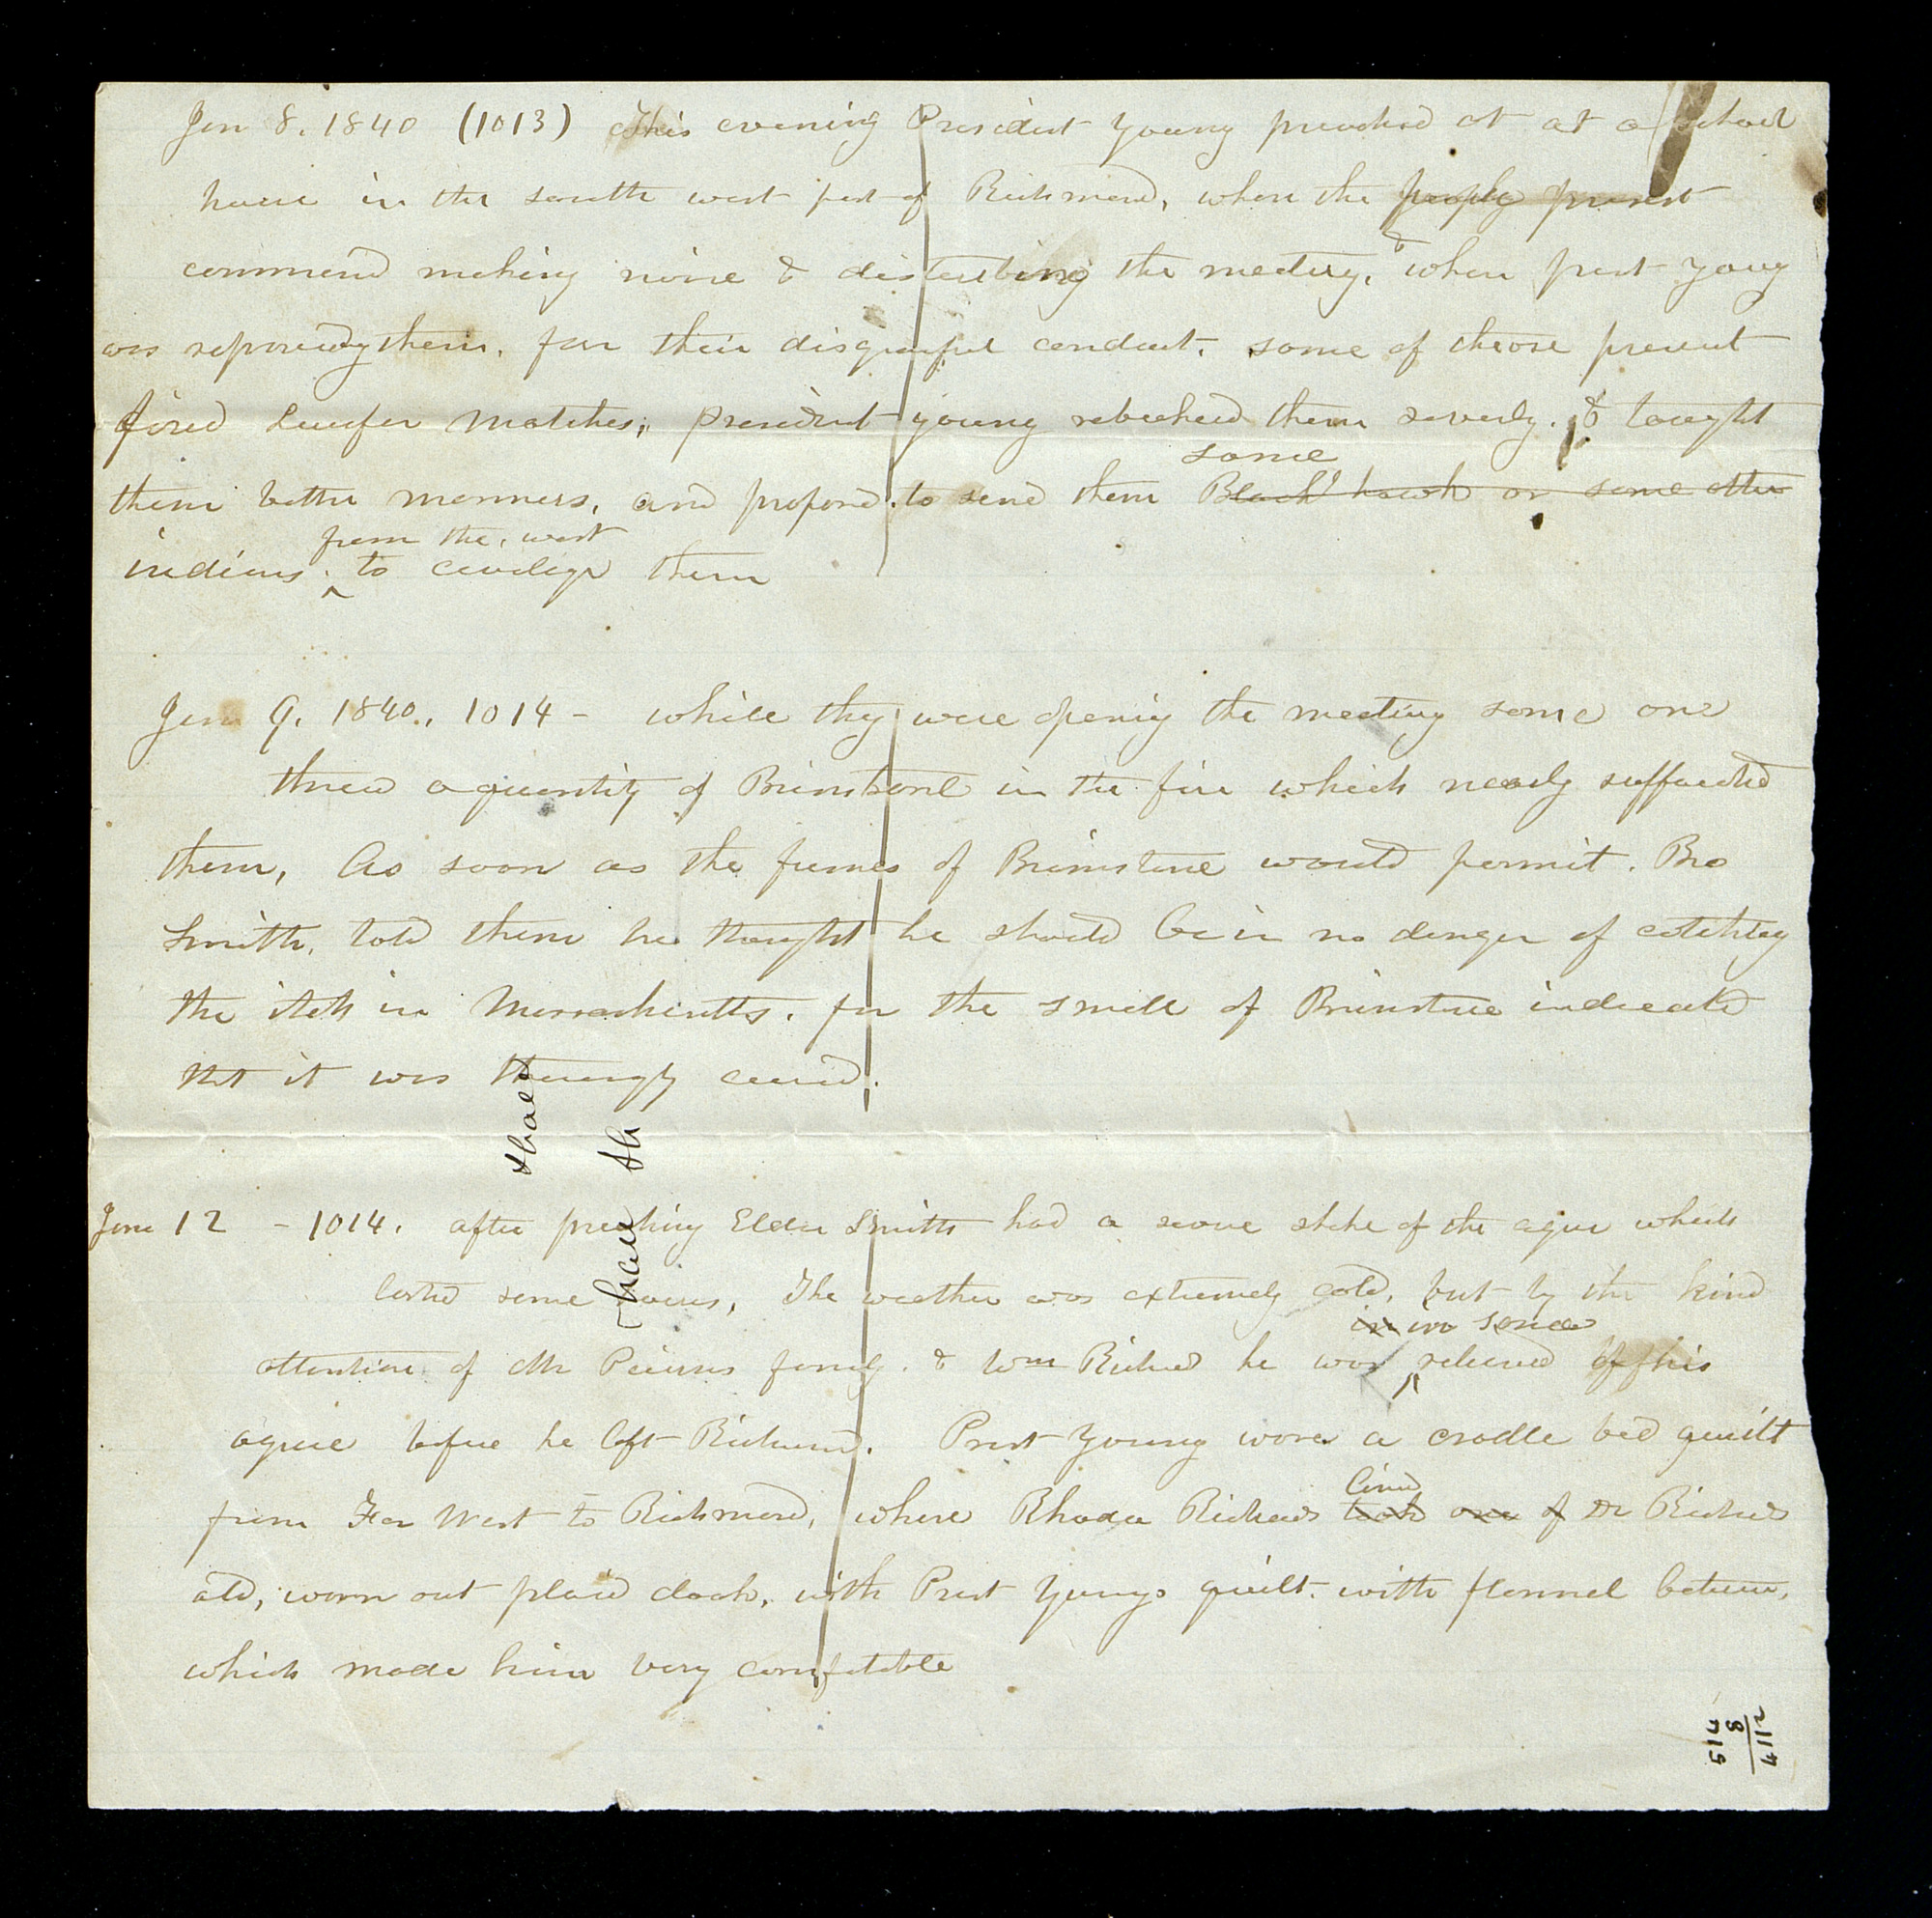 Jan 8. 1840 (1013) This evening President Young preached at at a school
house in the south west part of Richmond, where the people present
commend making noise & disturbing the meeting, & when prest young
was reproving them, for their disgraceful conduct, some of those present
fired Lucifer Matches; president young rebuked them severely. & taught
some
them better manners, and proposed to send them Black hawk or some other
from the west
indians to civilize them
Jan 9. 1840., 1014 - while they were opening the meeting some one
threw a quantity of Brimstone in the fire which nearly suffocated
them, As soon as the fumes of Brimstone would permit. Bro
Smith, told them he thought he should be in no danger of catching
the itch in Massachusetts. for the smell of Brimstone indicated
that it was thoroughly cured.
shall
sh
hall
Jan 12 - 1014. after preaching Elder Smith had a severe shake of the ague which
lasted some hours, The weather was extremely cold, but by the kind
in in some
attention of Mr Peirces family. & Wm Richards he was relieved of his
ague before he left Richmond. Prest Young wore a cradle bed quilt
lined
from Far West to Richmond, where Rhoda Richards took one of Dr Richards
old, worn out plaid cloak, with Prest Youngs quilt. with flannel between,
which made him very comfortable
514
8
4112